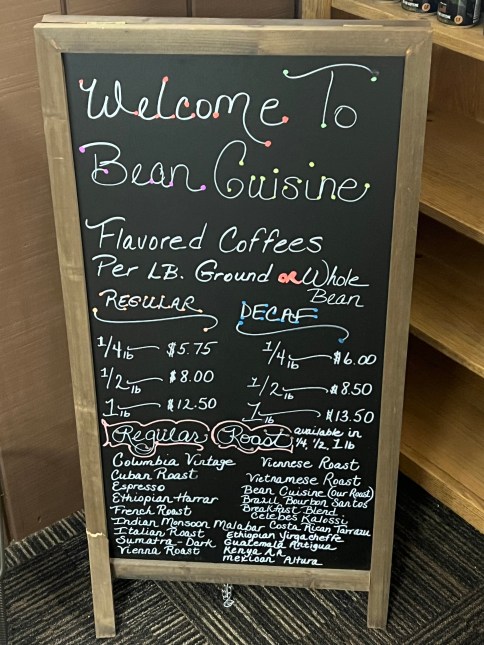 Welcome To
Bean Cuisine
Flavored Coffees
Per LB. Ground OR Whole
Bean
REGULAR
DECAF
1/4 lb $5.75
1/4 lb $6.00
1/2 lb $8.00
1/2 lb $8.50
1 lb $12.50
1 lb $13.50
Regular Roast available in
1/4, 1/2, 1 lb
Columbia Vintage
Cuban Roast
Espresso
Ethiopian Harrar
French Roast
Indian Monsoon Malabar
Italian Roast
Sumatra - Dark
Vienna Roast
Viennese Roast
Vietnamese Roast
Bean Cuisine (Our Roast)
Brazil Bourbon Santos
Breakfast Blend
Celebes Kalossi
Costa Rican Tarrazu
Ethiopian Yirgacheffe
Guatemala Antigua
Kenya A.A
Mexican Altura